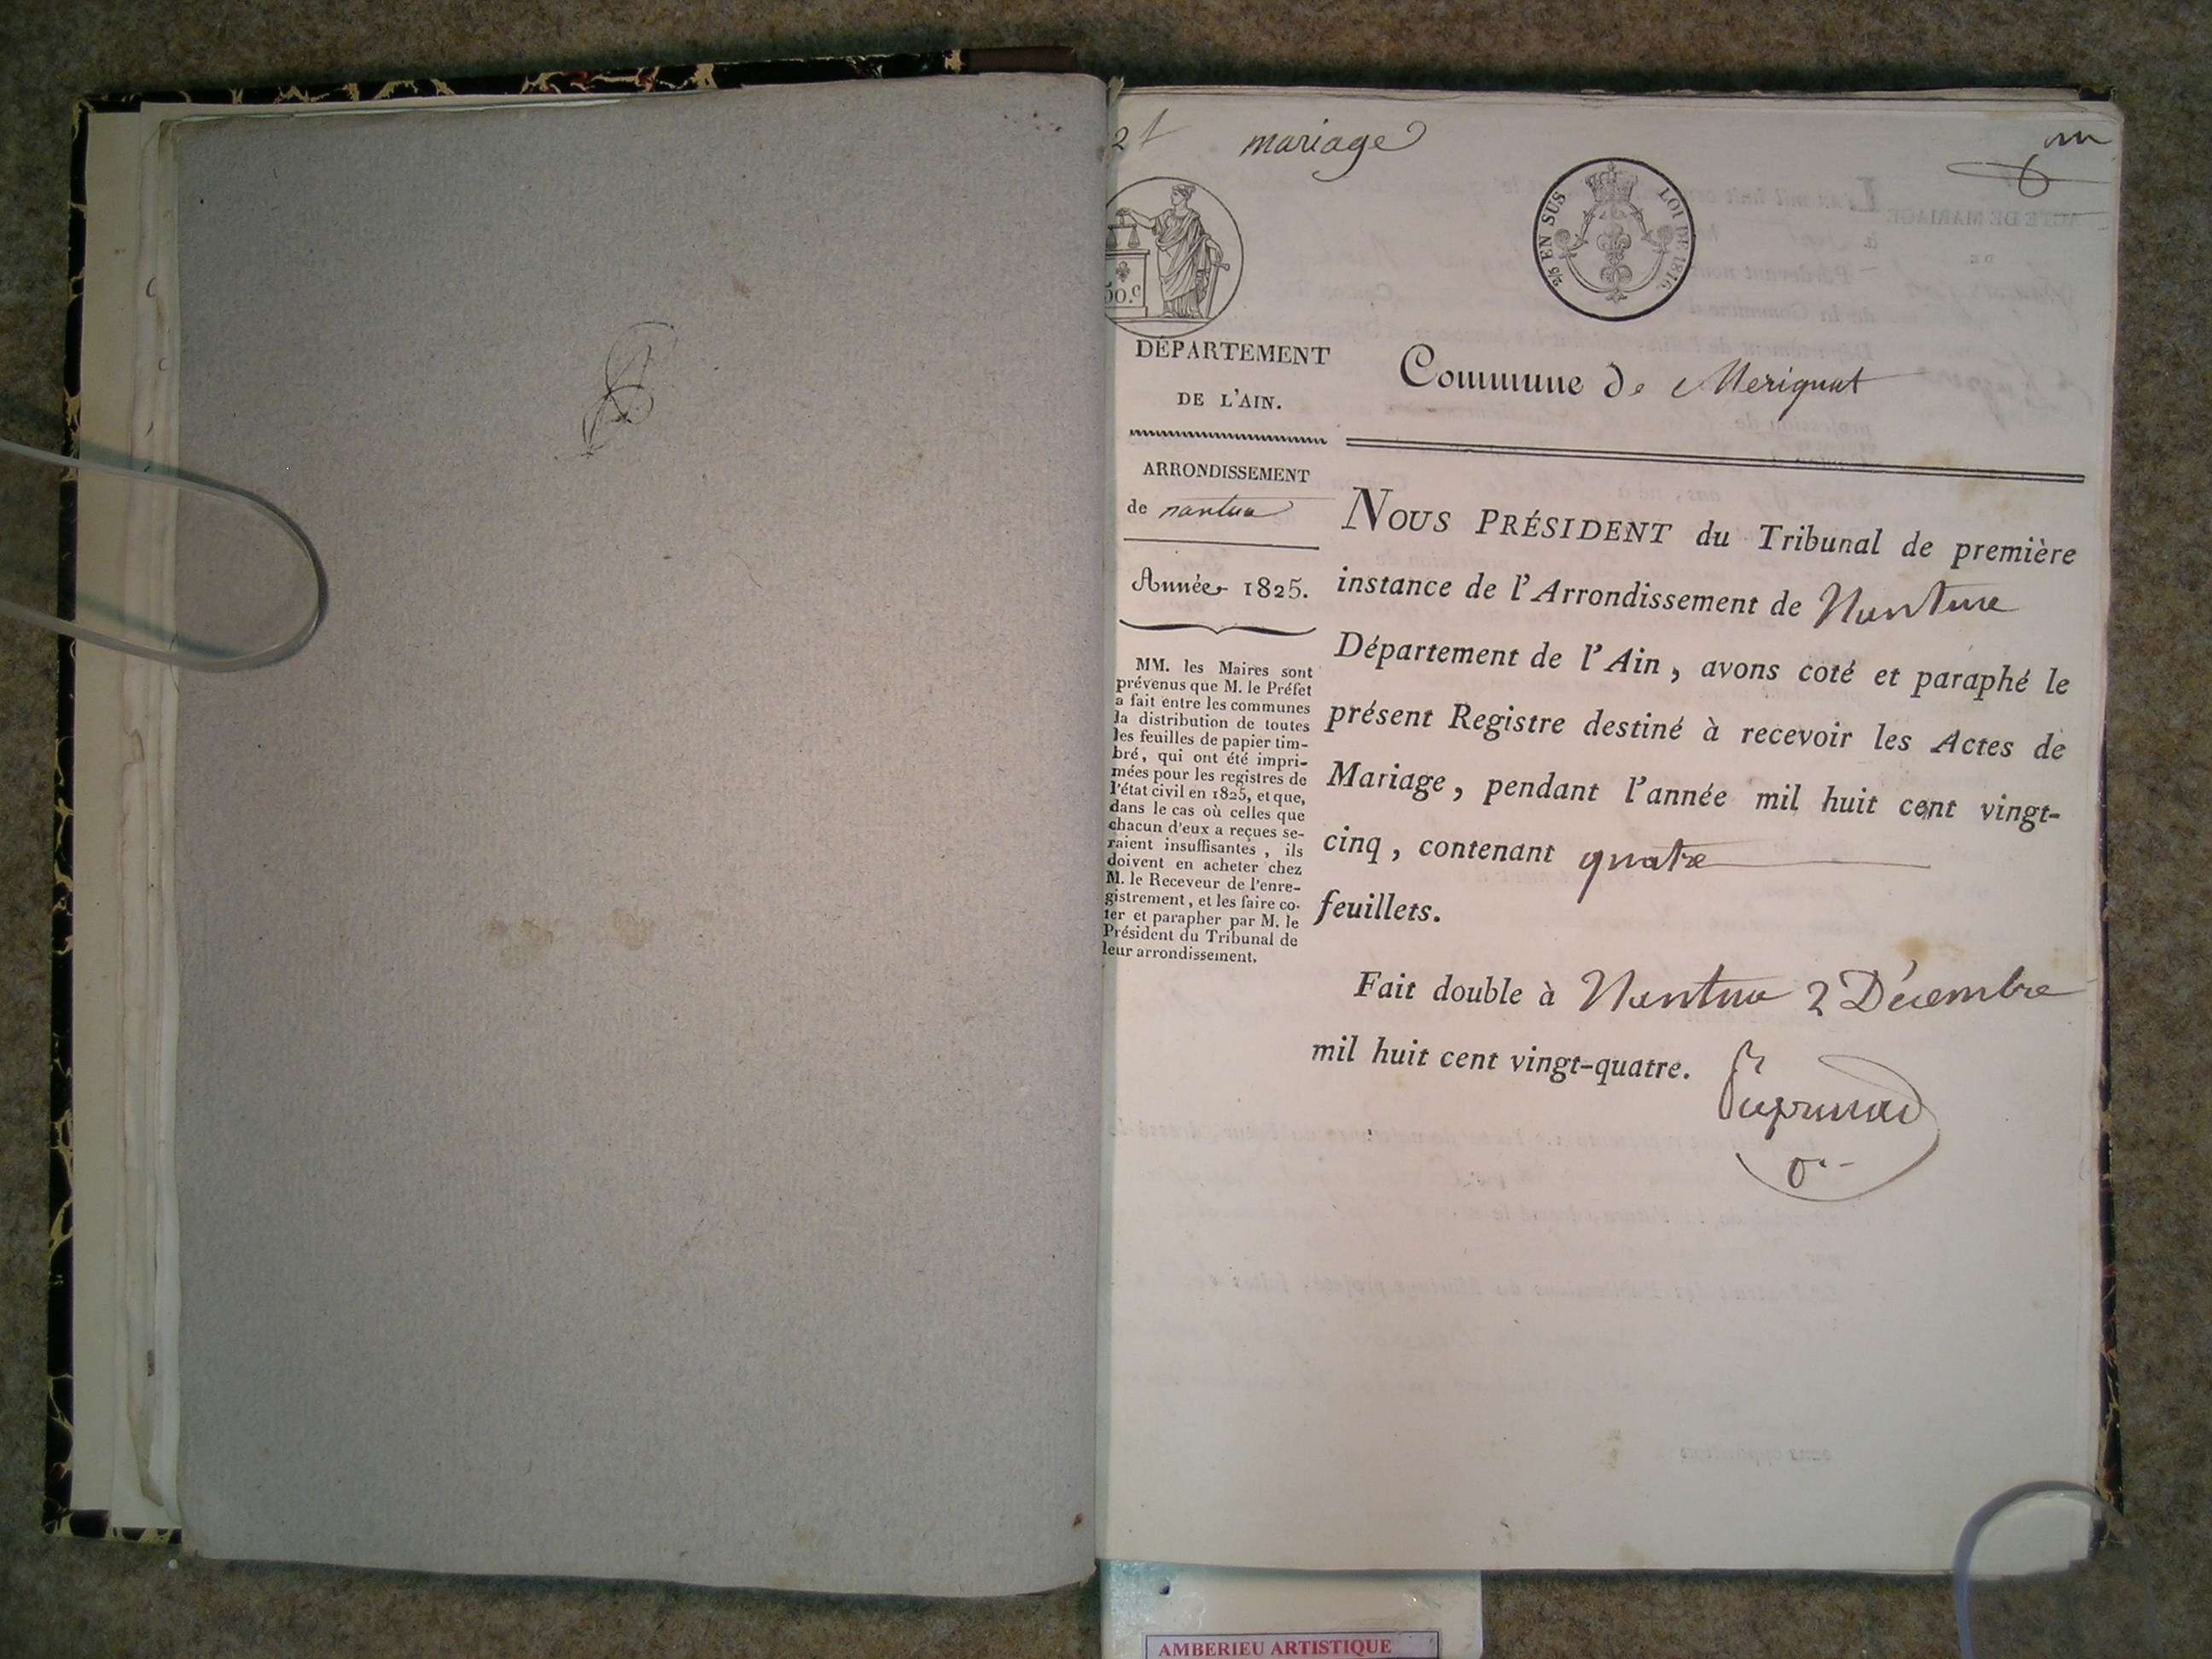 mariage
2/5 EN SUS LOI DE 1816.
50.c
DÉPARTEMENT
DE L'AIN.
ARRONDISSEMENT
de nantua
Année 1825.
MM. les Maires sont
prévenus que M. le Préfet
a fait entre les communes
la distribution de toutes
les feuilles de papier tim-
bré, qui ont été impri-
mées pour les registres de
l'état civil en 1825, et que,
dans le cas où celles que
chacun d'eux a reçues se-
raient insuffisantes, ils
doivent en acheter chez
M. le Receveur de l'enre-
gistrement, et les faire co-
ter et parapher par M. le
Président du Tribunal de
leur arrondissement.
Commune de Merignat
NOUS PRÉSIDENT du Tribunal de première
instance de l'Arrondissement de Nantua
Département de l'Ain, avons coté et paraphé le
présent Registre destiné à recevoir les Actes de
Mariage, pendant l'année mil huit cent vingt-
cinq, contenant quatre
feuillets.
Fait double à Nantua 2 Décembre
mil huit cent vingt-quatre.
AMBERIEU ARTISTIQUE